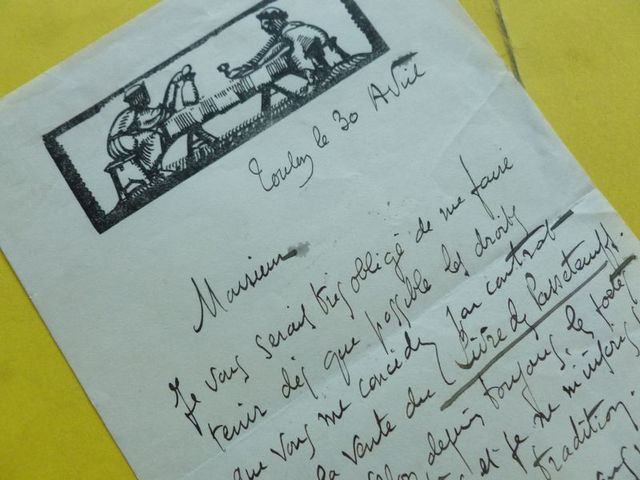 Toulon le 30 Avril
Monsieur
Je vous serais très obligé de me faire
tenir dès que possible les droits
que vous me concédez par contrat
la vente du (Livre de Passetemps.
depuis toujours les poètes
et je ne m'inscris
tradition.